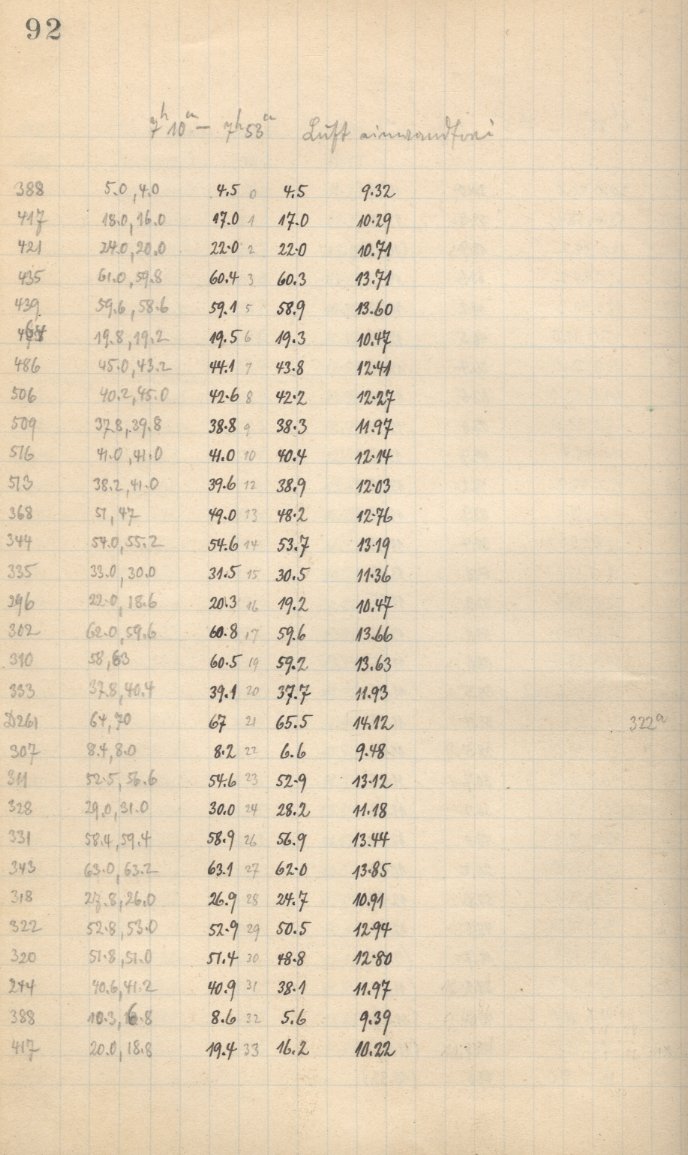 92
7h10a – 7h53a Luft einwandfrei
388 5.0, 4.0 4.5 0 4.5 9.32
417 18.0, 16.0 17.0 1 17.0 10.29
421 24.0, 20.0 22.0 2 22.0 10.71
435 61.0, 59.8 60.4 3 60.3 13.71
439 59.6, 58.6 59.1 5 58.9 13.60
19.8, 19.2 19.5 6 19.3 10.47
486 45.0, 43.2 44.1 7 43.8 12.41
506 40.2, 45.0 42.6 8 42.2 12.27
509 37.8, 39.8 38.8 9 38.3 11.97
516 41.0, 41.0 41.0 10 40.4 12.14
513 38.2, 41.0 39.6 12 38.9 12.03
368 51, 47 49.0 13 48.2 12.76
344 54.0, 55.2 54.6 14 53.7 13.19
335 33.0, 30.0 31.5 15 30.5 11.36
296 22.0, 18.6 20.3 16 19.2 10.47
302 62.0, 59.6 60.8 17 59.6 13.66
310 58, 63 60.5 19 59.2 13.63
333 37.8, 40.4 39.1 20 37.7 11.93
D261 64, 70 67 21 65.5 14.12 322a
307 8.4, 8.0 8.2 22 6.6 9.48
311 52.5, 56.6 54.6 23 52.9 13.12
328 29.0, 31.0 30.0 24 28.2 11.18
331 58.4, 59.4 58.9 26 56.9 13.44
343 63.0, 63.2 63.1 27 62.0 13.85
318 27.8, 26.0 26.9 28 24.7 10.91
322 52.8, 53.0 52.9 29 50.5 12.94
320 51.8, 51.0 51.4 30 48.8 12.80
244 40.6, 41.2 40.9 31 38.1 11.97
388 10.3, 6.8 8.6 32 5.6 9.39
417 20.0, 18.8 19.4 33 16.2 10.22